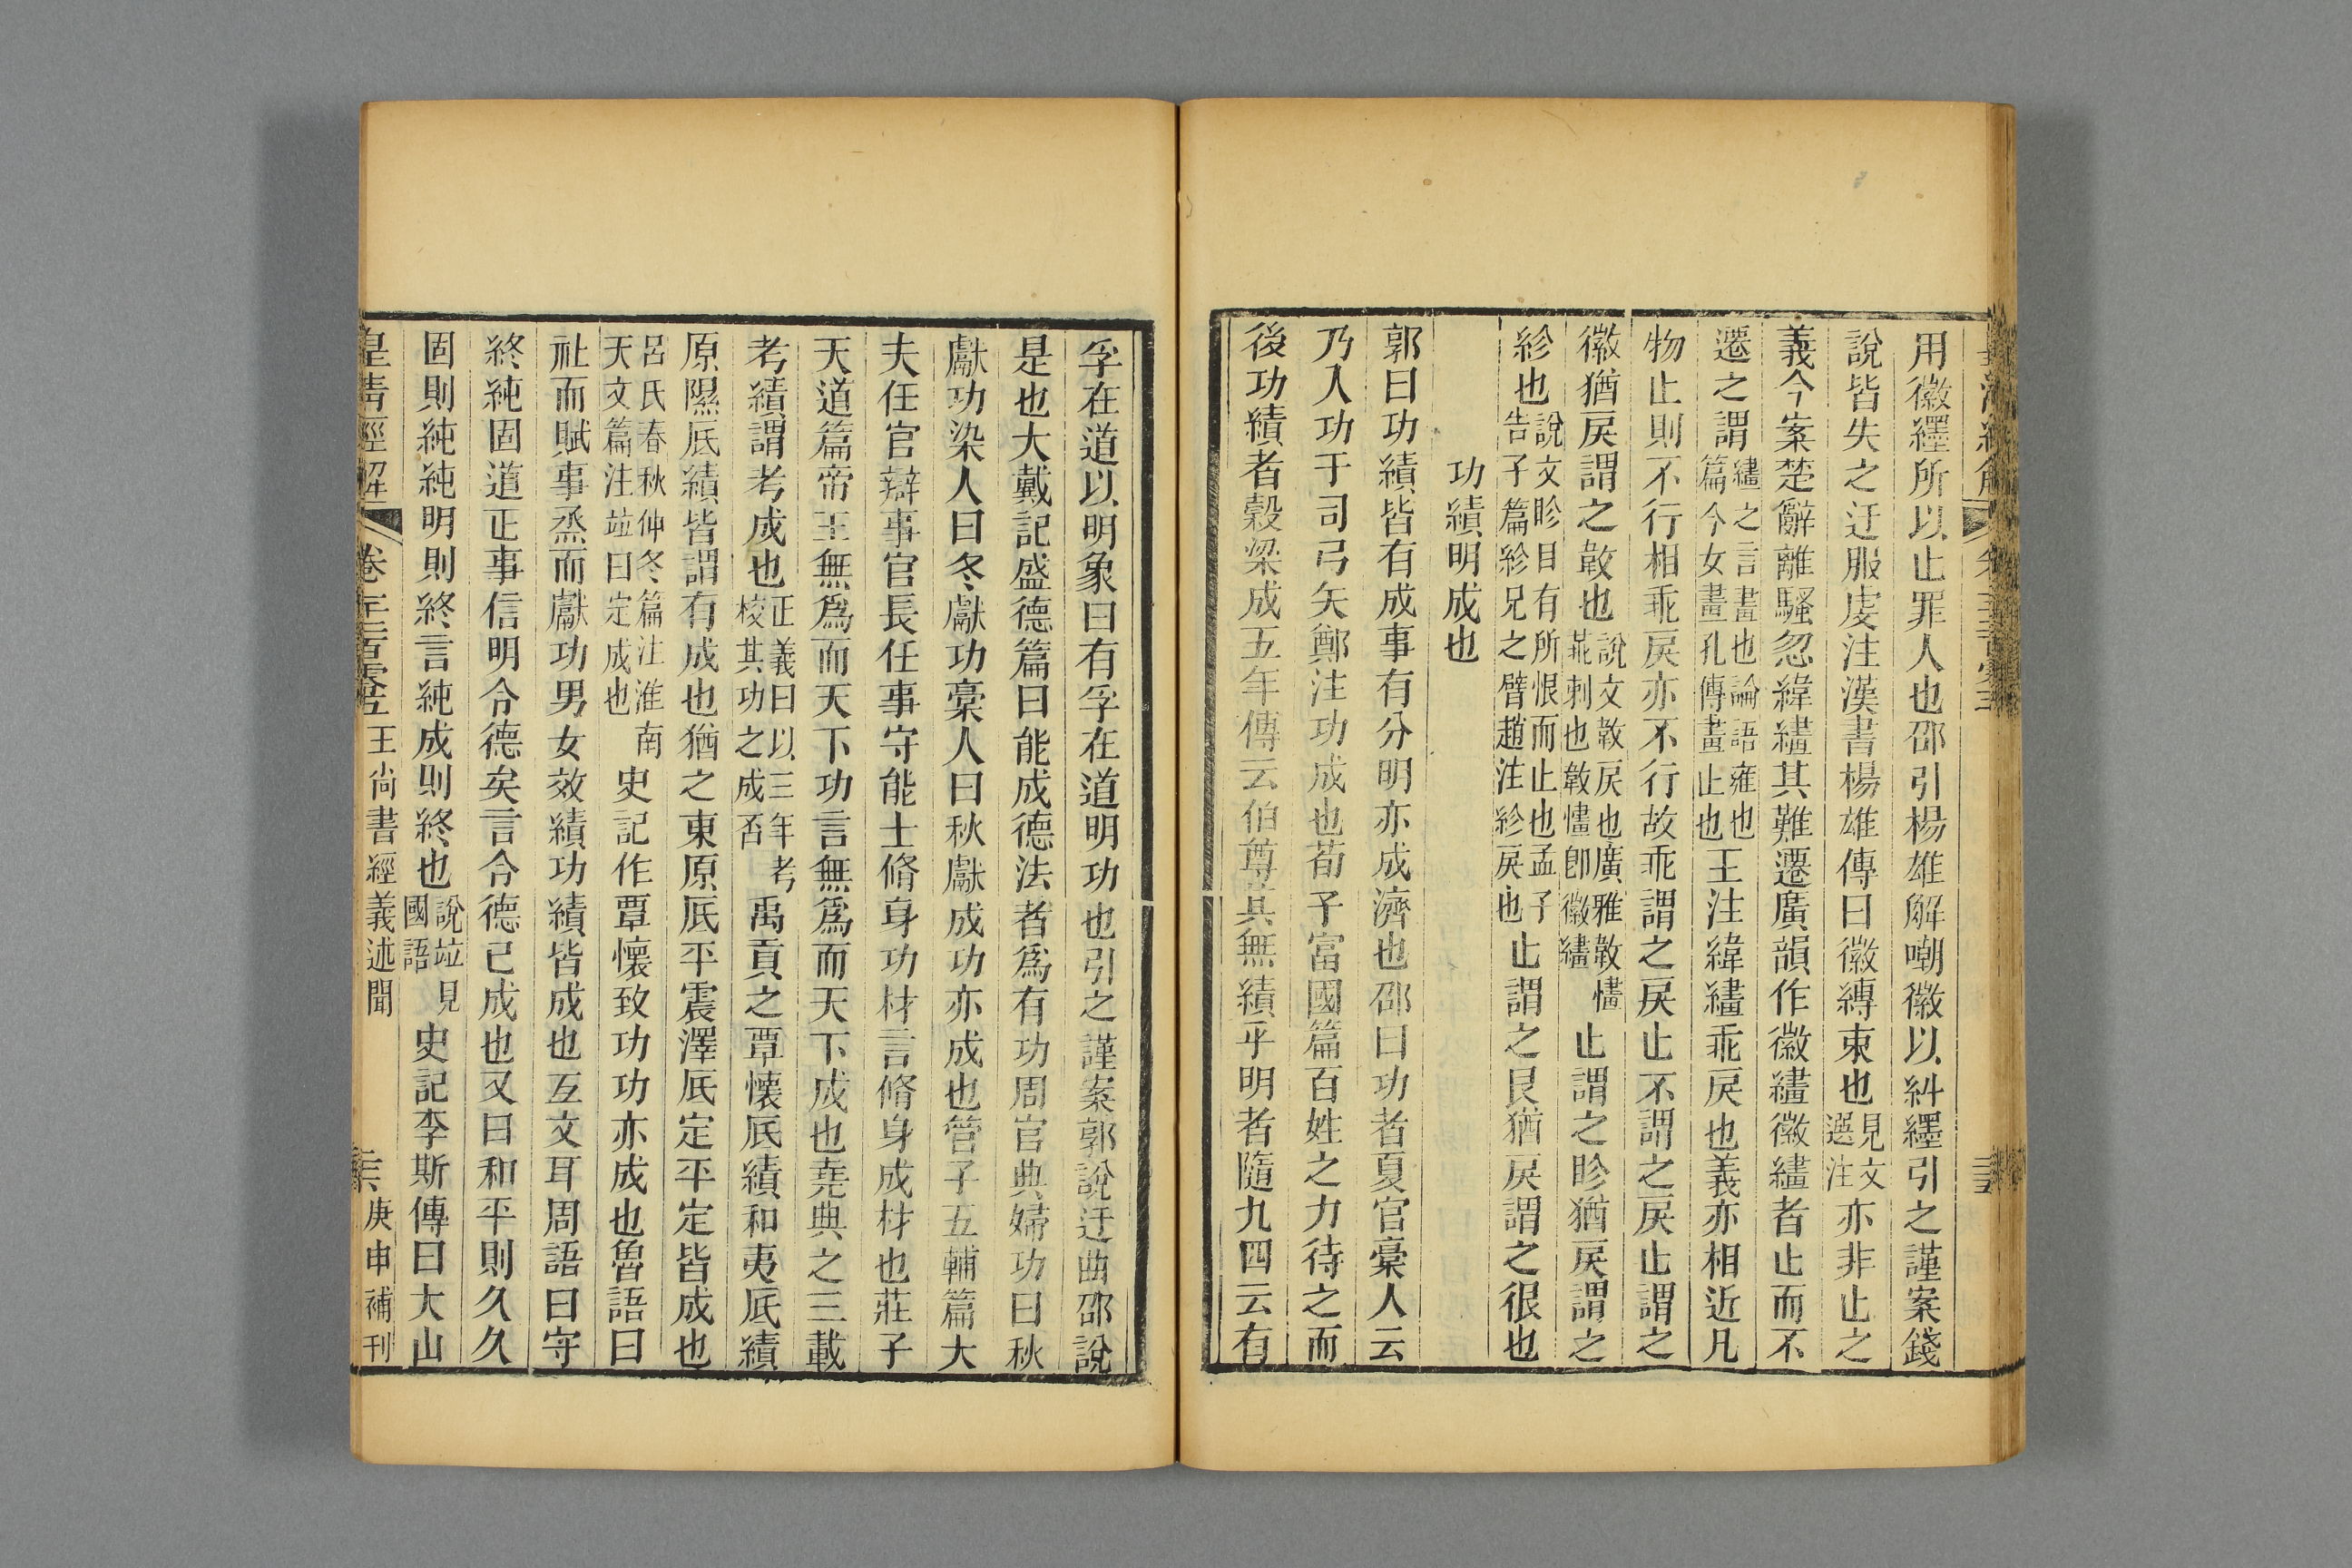 用徽纆所以止罪人也邵引楊雄解嘲徽以糾纆引之謹案錢
說皆失之迂服虔注漢書楊雄傳曰徽縛束也見文選注亦非止之
義今案楚辭離騷忽緯繣其難遷廣韻作徽繣徽繣者止而不
遷之謂繣之言畫也論語雍也篇今女畫孔傳畫止也王注緯繣乖戾也義亦相近凡
物止則不行相乖戾亦不行故乖謂之戾止不謂之戾止謂之
徽猶戾謂之㪏也說文㪏戾也廣雅㪏㦎乖剌也㪏㦎卽徽繣止謂之眕猶戾謂之
紾也說文眕目有所恨而止也孟子告子篇紾兄之臂趙注紾戾也止謂之艮猶戾謂之很也
功績明成也
郭曰功績皆有成事有分明亦成濟也邵曰功者夏官槀人云
乃入功于司弓矢鄭注功成也荀子富國篇百姓之力待之而
後功績者穀梁成五年傳云伯尊其無績乎明者隨九四云有
孚在道以明象曰有孚在道明功也引之謹案郭說迂曲邵說
是也大戴記盛德篇曰能成德法者爲有功周官典婦功曰秋
獻功染人曰冬獻功槀人曰秋獻成功亦成也管子五輔篇大
夫任官辯事官長任事守能士脩身功材言脩身成材也莊子
天道篇帝王無爲而天下功言無爲而天下成也堯典之三載
考績謂考成也正義曰以三年考校其功之成否禹貢之覃懷厎績和夷厎績
原隰厎績皆謂有成也猶之東原厎平震澤厎定平定皆成也
呂氏春秋仲冬篇注淮南天文篇注竝曰定成也史記作覃懷致功功亦成也魯語曰
社而賦事烝而獻功男女效績功績皆成也互文耳周語曰守
終純固道正事信明令德矣言令德已成也又曰和平則久久
固則純純明則終言純成則終也說竝見國語史記李斯傳曰大山
皇清經解 卷 王尚書經義述聞 庚申補刊